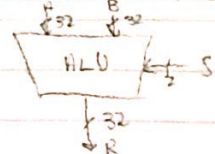 A B
32 32
ALU
2 S
32
R